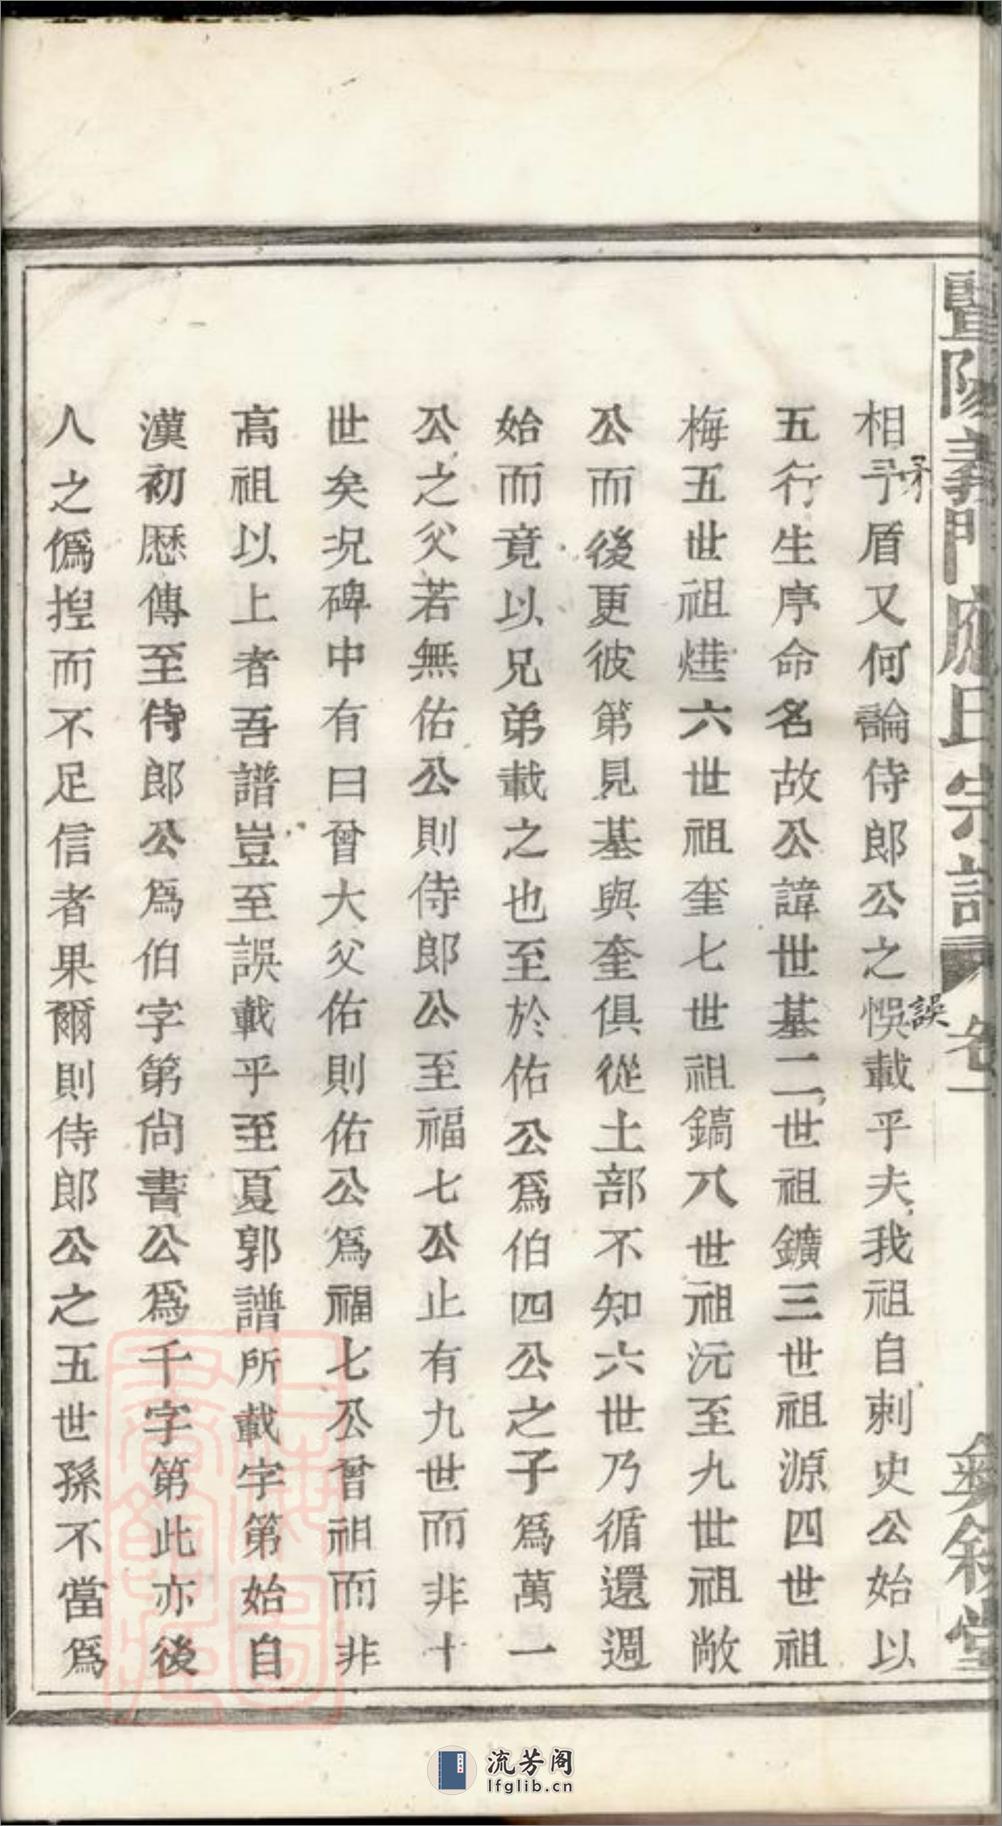 暨陽義門應氏宗譜 卷一 彝敘堂
相予盾又何論侍郎公之悞載乎夫我祖自刺史公始以
矛
誤
五行生序命名故公諱世基二世祖鑛三世祖源四世祖
梅五世祖爀六世祖奎七世祖鎬八世祖沅至九世祖敞
公而後更彼第見基與奎俱從土部不知六世乃循還週
始而竟以兄弟載之也至於佑公為伯四公之子為萬一
公之父若無佑公則侍郎公至福七公止有九世而非十
世矣况碑中有曰曾大父佑則佑公為福七公曾祖而非
高祖以上者吾譜豈至誤載乎至夏郭譜所載字第始自
漢初歷傳至侍郎公為伯字第尚書公為千字第此亦後
人之僞揑而不足信者果爾則侍郎公之五世孫不當為
上海圖書館藏
流芳阁
lfglib.cn